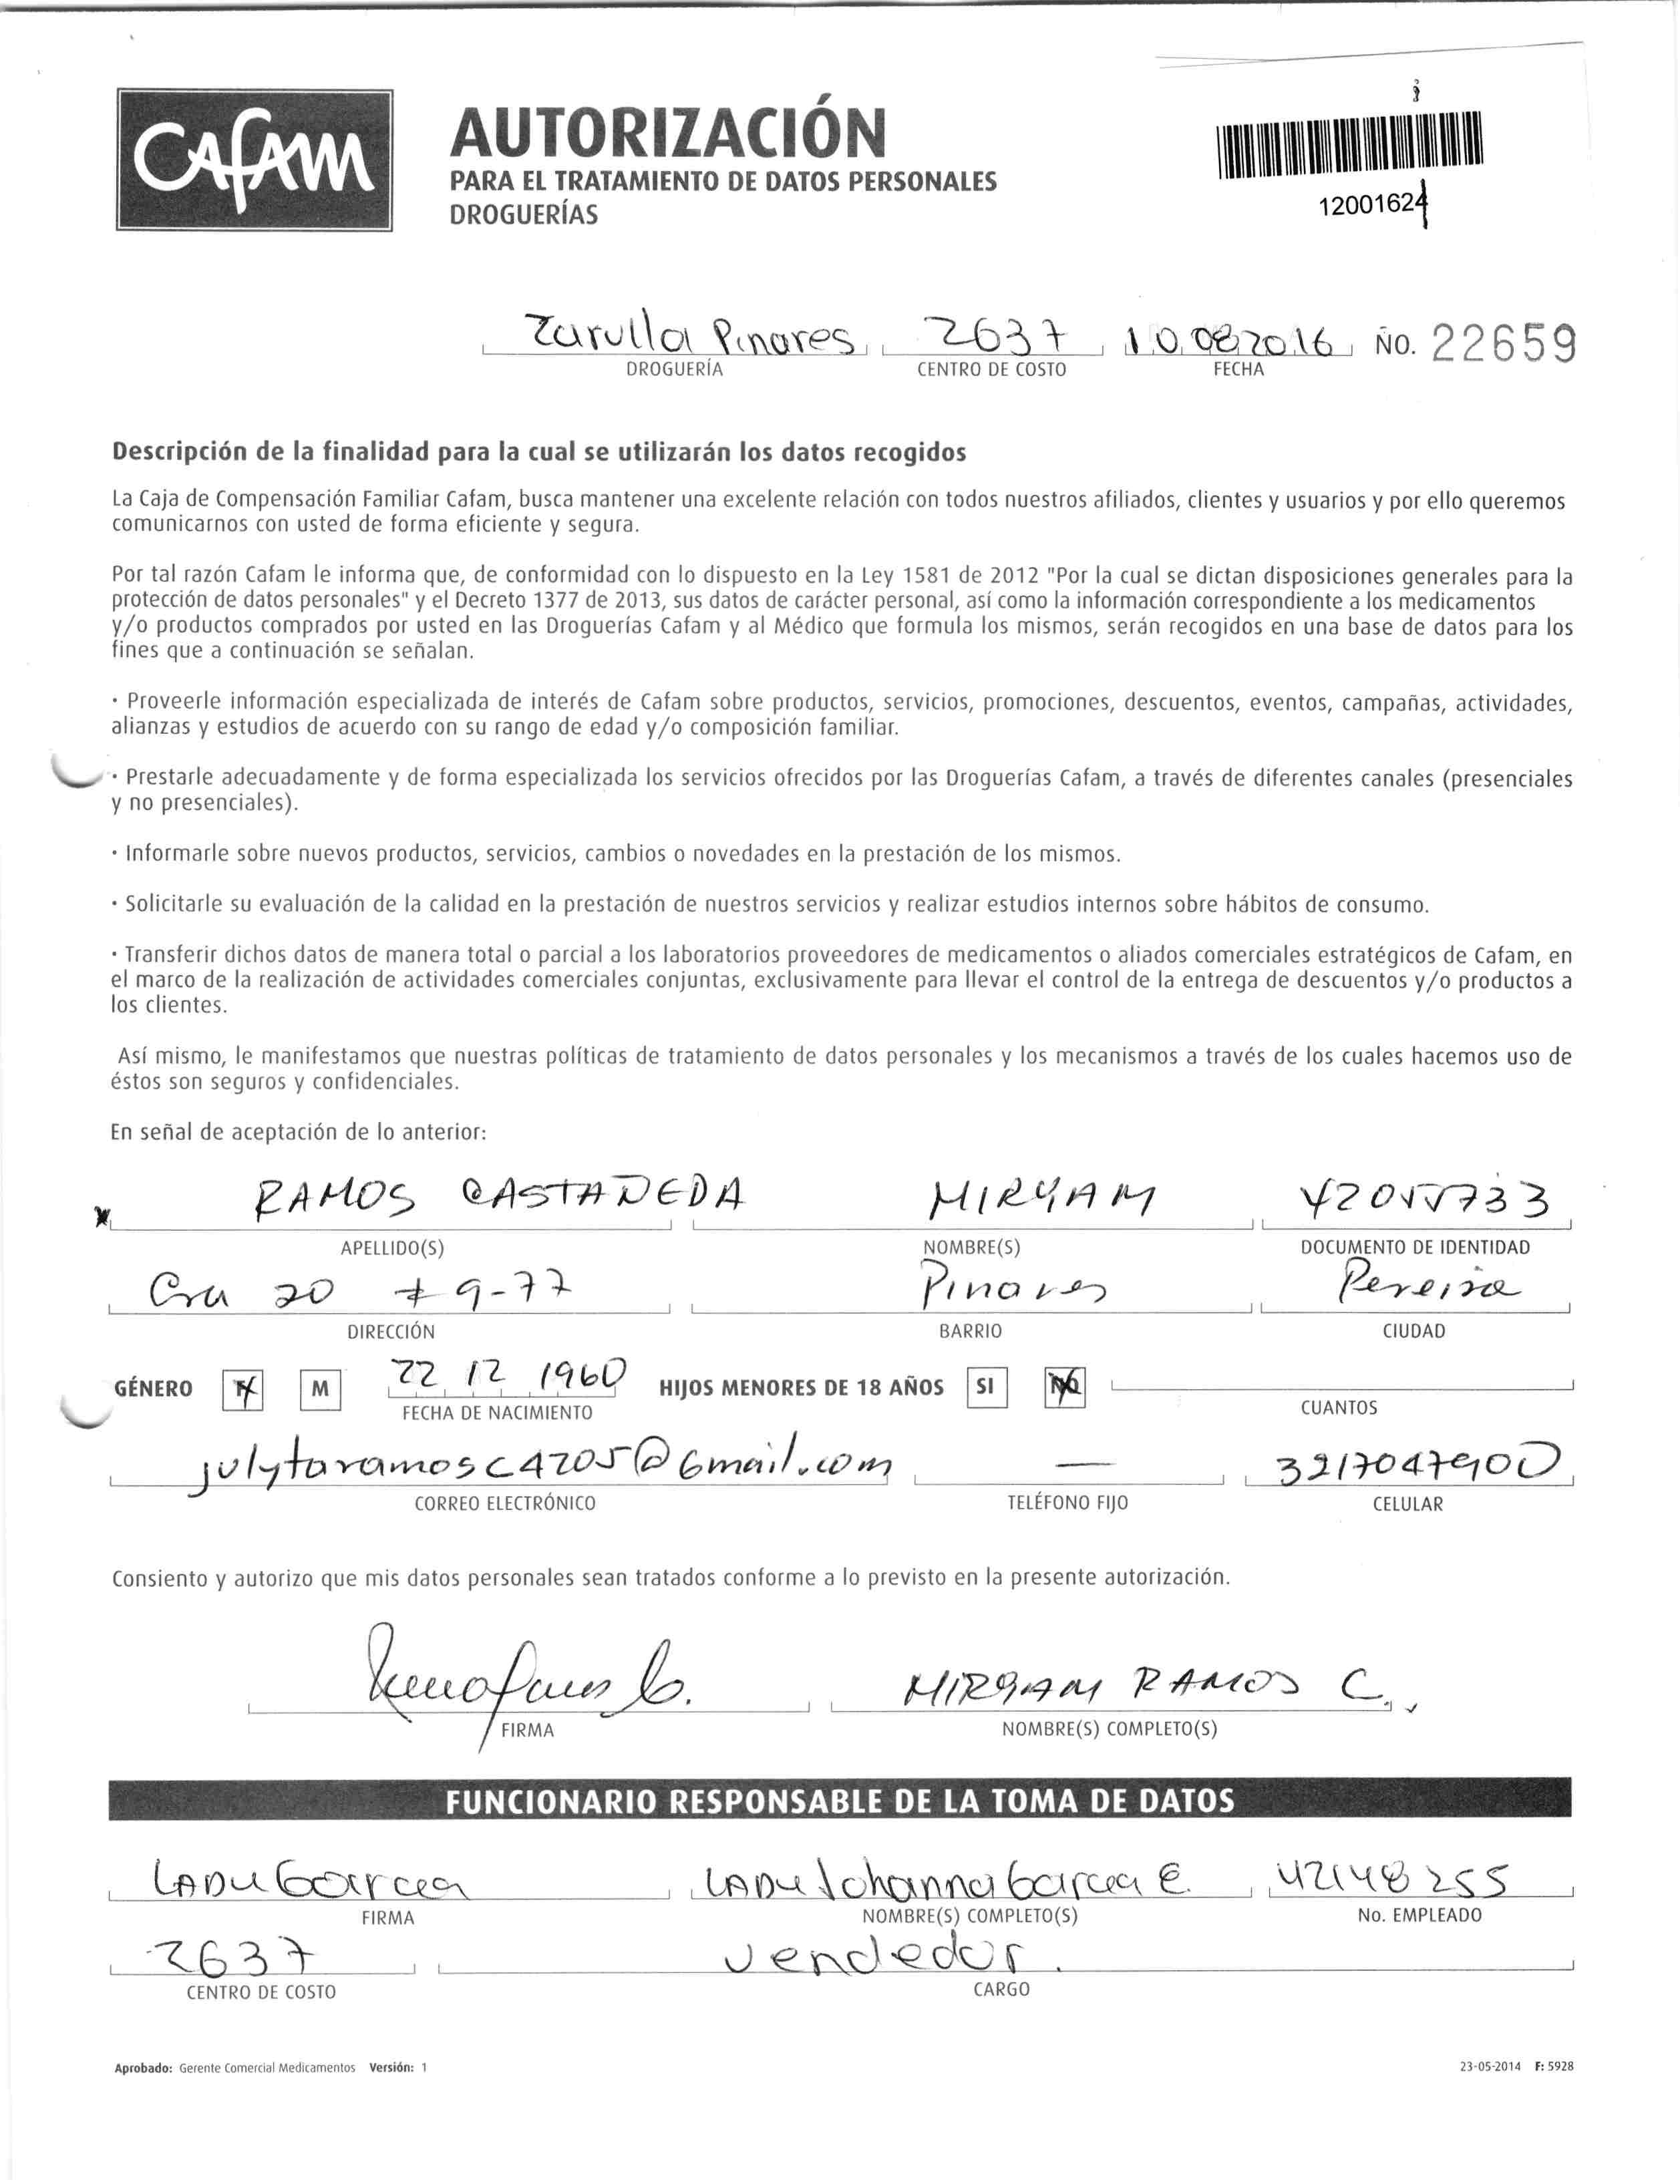 CAFAM
AUTORIZACIÓN
PARA EL TRATAMIENTO DE DATOS PERSONALES
DROGUERÍAS
12001624
Zarulla Pinares 2637 10 08 2016 No. 22659
DROGUERÍA CENTRO DE COSTO FECHA
Descripción de la finalidad para la cual se utilizarán los datos recogidos
La Caja de Compensación Familiar Cafam, busca mantener una excelente relación con todos nuestros afiliados, clientes y usuarios y por ello queremos
comunicarnos con usted de forma eficiente y segura.
Por tal razón Cafam le informa que, de conformidad con lo dispuesto en la Ley 1581 de 2012 "Por la cual se dictan disposiciones generales para la
protección de datos personales" y el Decreto 1377 de 2013, sus datos de carácter personal, así como la información correspondiente a los medicamentos
y/o productos comprados por usted en las Droguerías Cafam y al Médico que formula los mismos, serán recogidos en una base de datos para los
fines que a continuación se señalan.
· Proveerle información especializada de interés de Cafam sobre productos, servicios, promociones, descuentos, eventos, campañas, actividades,
alianzas y estudios de acuerdo con su rango de edad y/o composición familiar.
· Prestarle adecuadamente y de forma especializada los servicios ofrecidos por las Droguerías Cafam, a través de diferentes canales (presenciales
y no presenciales).
· Informarle sobre nuevos productos, servicios, cambios o novedades en la prestación de los mismos.
· Solicitarle su evaluación de la calidad en la prestación de nuestros servicios y realizar estudios internos sobre hábitos de consumo.
· Transferir dichos datos de manera total o parcial a los laboratorios proveedores de medicamentos o aliados comerciales estratégicos de Cafam, en
el marco de la realización de actividades comerciales conjuntas, exclusivamente para llevar el control de la entrega de descuentos y/o productos a
los clientes.
Así mismo, le manifestamos que nuestras políticas de tratamiento de datos personales y los mecanismos a través de los cuales hacemos uso de
éstos son seguros y confidenciales.
En señal de aceptación de lo anterior:
x RAMOS CASTAÑEDA MIRYAM 42055733
APELLIDO(S) NOMBRE(S) DOCUMENTO DE IDENTIDAD
Cra 20 # 9-77 Pinares Pereira
DIRECCIÓN BARRIO CIUDAD
GÉNERO F M 22 12 1960 HIJOS MENORES DE 18 AÑOS SI NO
FECHA DE NACIMIENTO CUANTOS
julytaramosc4205@Gmail.com — 3217047900
CORREO ELECTRÓNICO TELÉFONO FIJO CELULAR
Consiento y autorizo que mis datos personales sean tratados conforme a lo previsto en la presente autorización.
MIRYAM RAMOS C.
FIRMA NOMBRE(S) COMPLETO(S)
FUNCIONARIO RESPONSABLE DE LA TOMA DE DATOS
LADY Garcia LADY Johanna Garcia E. 42148255
FIRMA NOMBRE(S) COMPLETO(S) No. EMPLEADO
2637 vendedor.
CENTRO DE COSTO CARGO
Aprobado: Gerente Comercial Medicamentos Versión: 1 23-05-2014 F: 5928